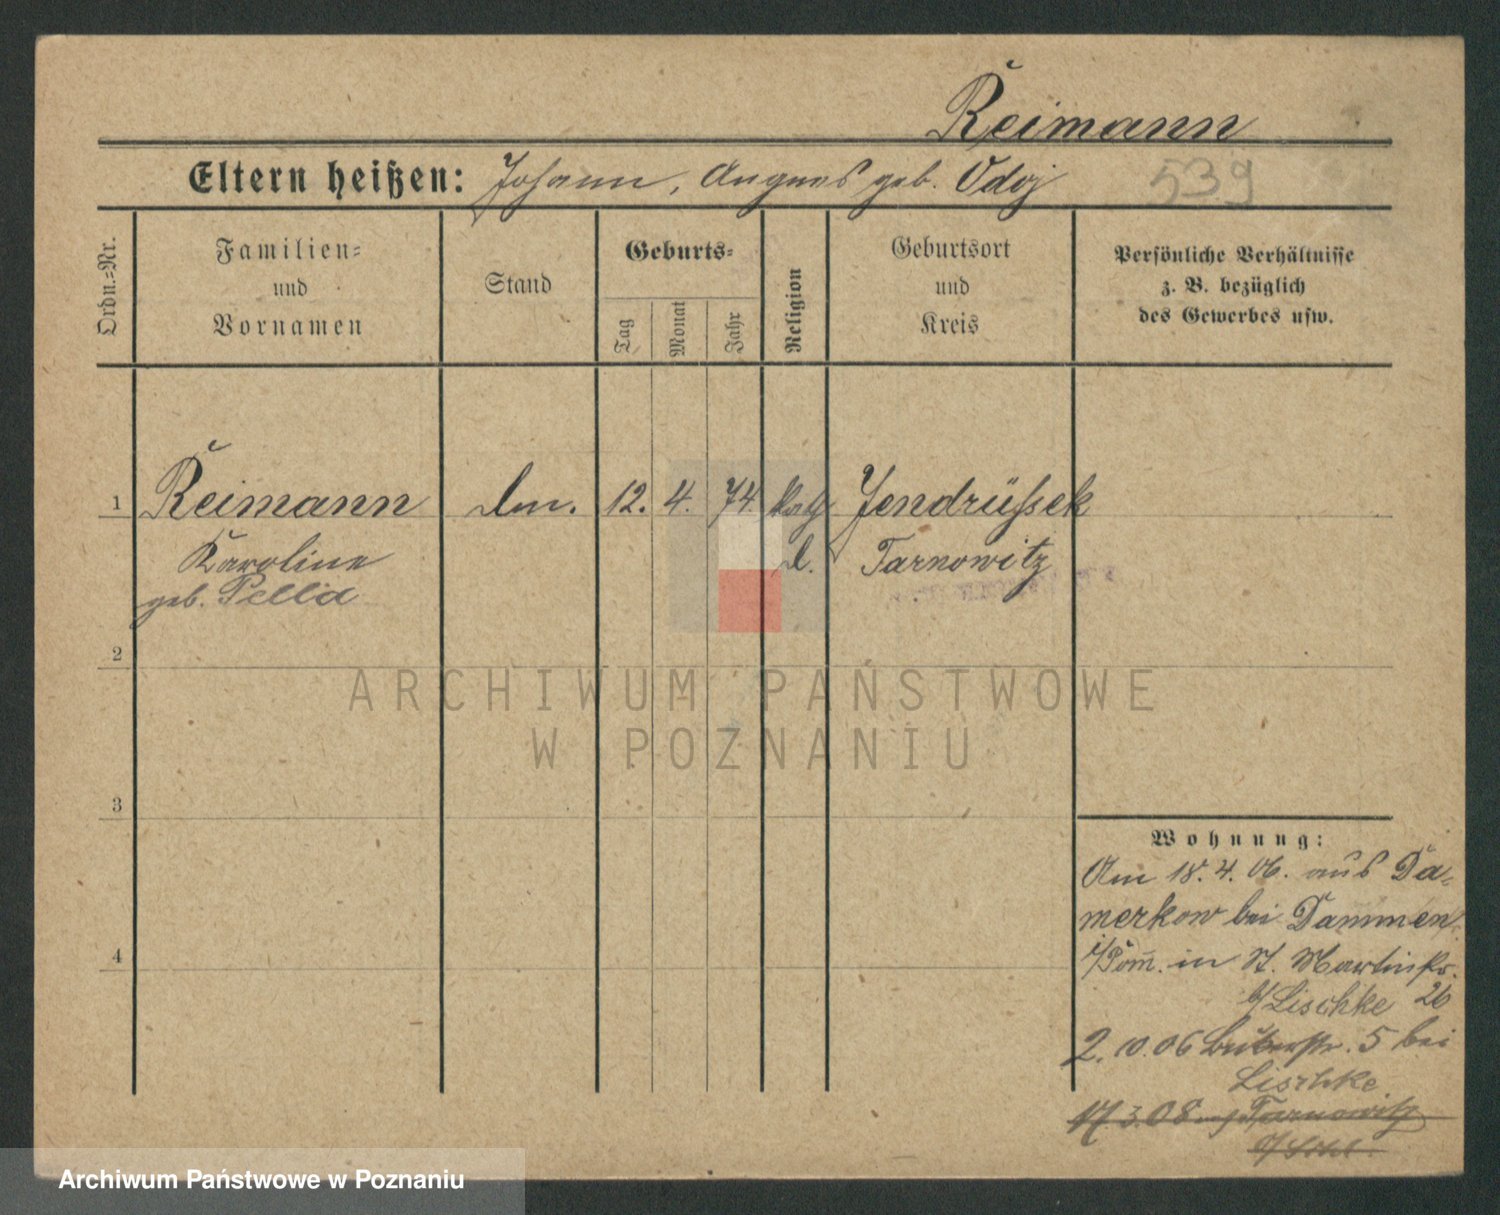 Reimann
Eltern heißen: Johann, Angnes geb. Odoj
539
Ordn.=Nr.
Familien=
und
Vornamen
Stand
Geburts=
Tag
Monat
Jahr
Religion
Geburtsort
und
Kreis
Persönliche Verhältnisse
z. B. bezüglich
des Gewerbes usw.
1 Reimann 12. 4. 74. kath Jendrüssek
Karoline d. Tarnowitz
geb. Pella
2
3
4
ARCHIWUM PAŃSTWOWE
W POZNANIU
Wohnung:
Am 18.4.06. aus Da=
merkow bei Dammen
i/Pom. in St. Martinstr.
b/Lischke 26
2.10.06 5 bei
Lischke
17.3.08 Tarnowitz
Archiwum Państwowe w Poznaniu